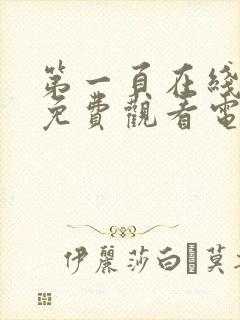 第一頁在綫
免費觀看電
伊麗莎白�莫